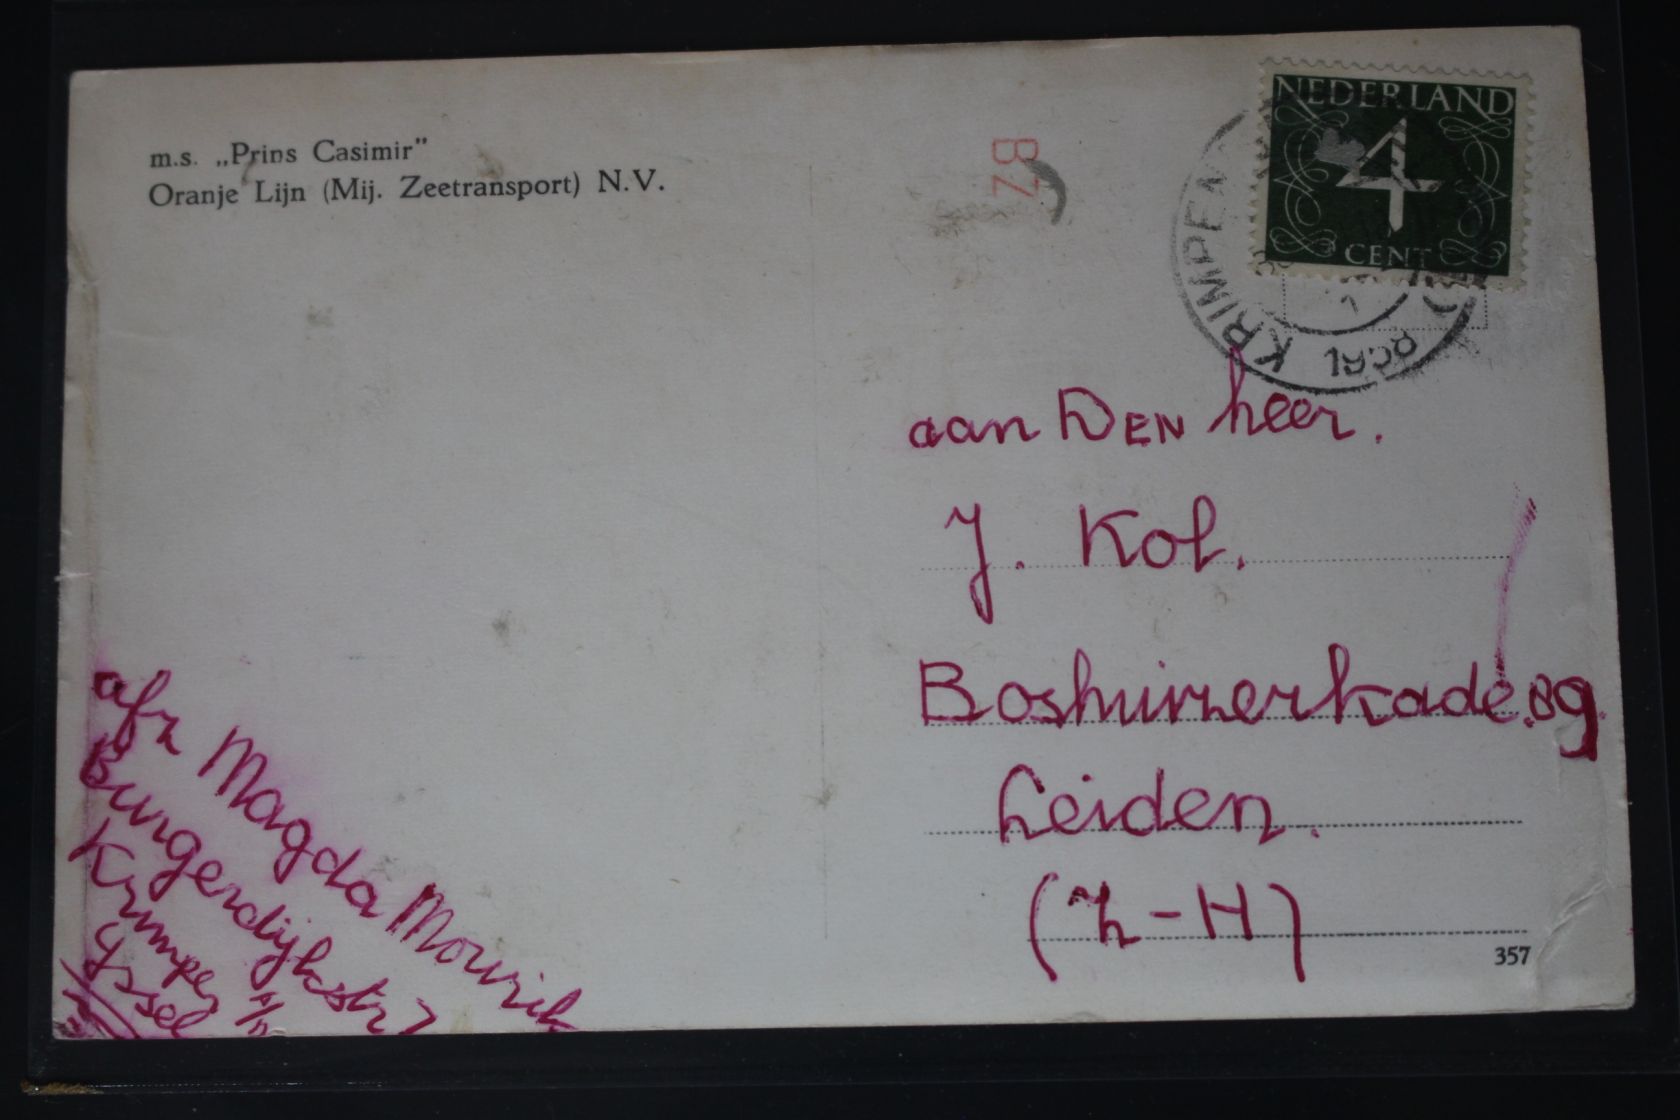 m.s. „Prins Casimir”
Oranje Lijn (Mij. Zeetransport) N.V.
BZ
NEDERLAND
4
CENT
KRIMPEN
aan DEN heer.
J. Kol.
Boshuizerkade.89.
Leiden.
(Z-H)
357
afz Magda Mourik
Burgerdijkstr 7
Krimpen a/d
Yssel